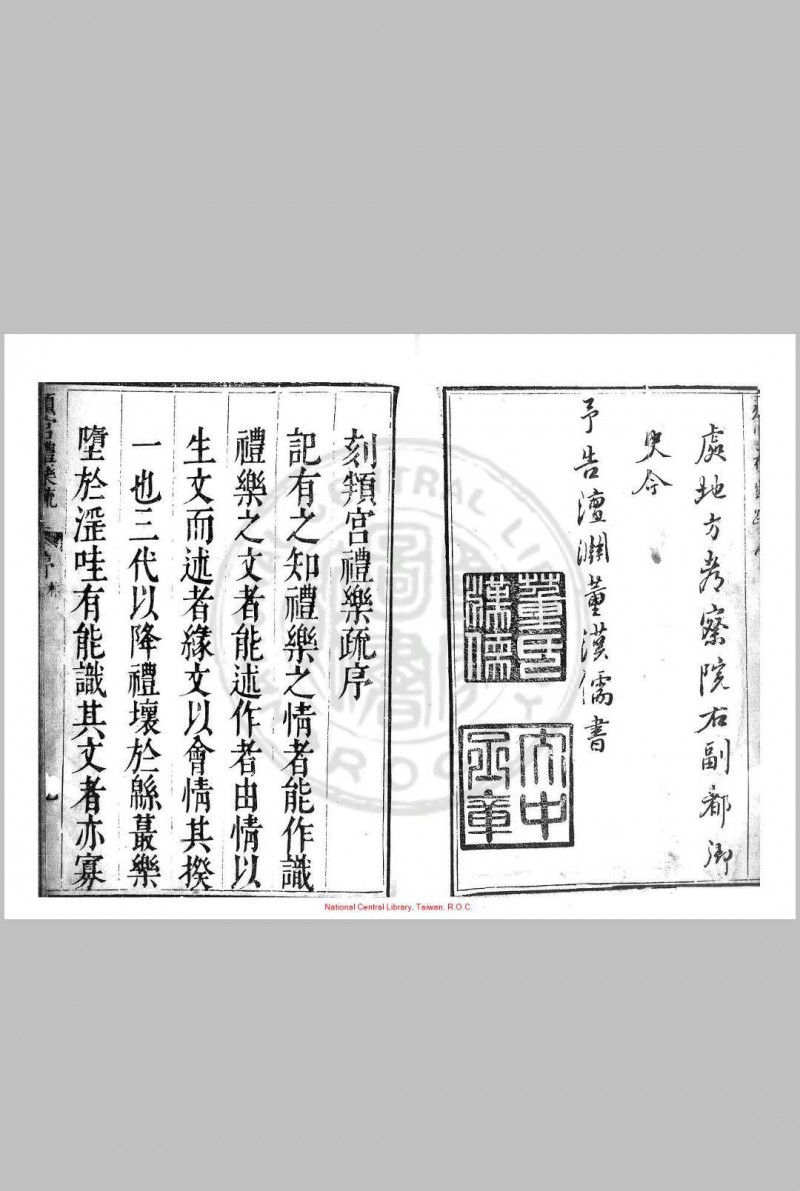 處地方考察院右副都御
史今
予告澶淵董漢儒書
董氏漢儒
大中丞章
刻頖宮禮樂疏序
記有之知禮樂之情者能作識
禮樂之文者能述作者由情以
生文而述者緣文以會情其揆
一也三代以降禮壞於緜蕞樂
墮於淫哇有能識其文者亦寡
頖宮禮樂疏 序
National Central Library, Taiwan. R.O.C.